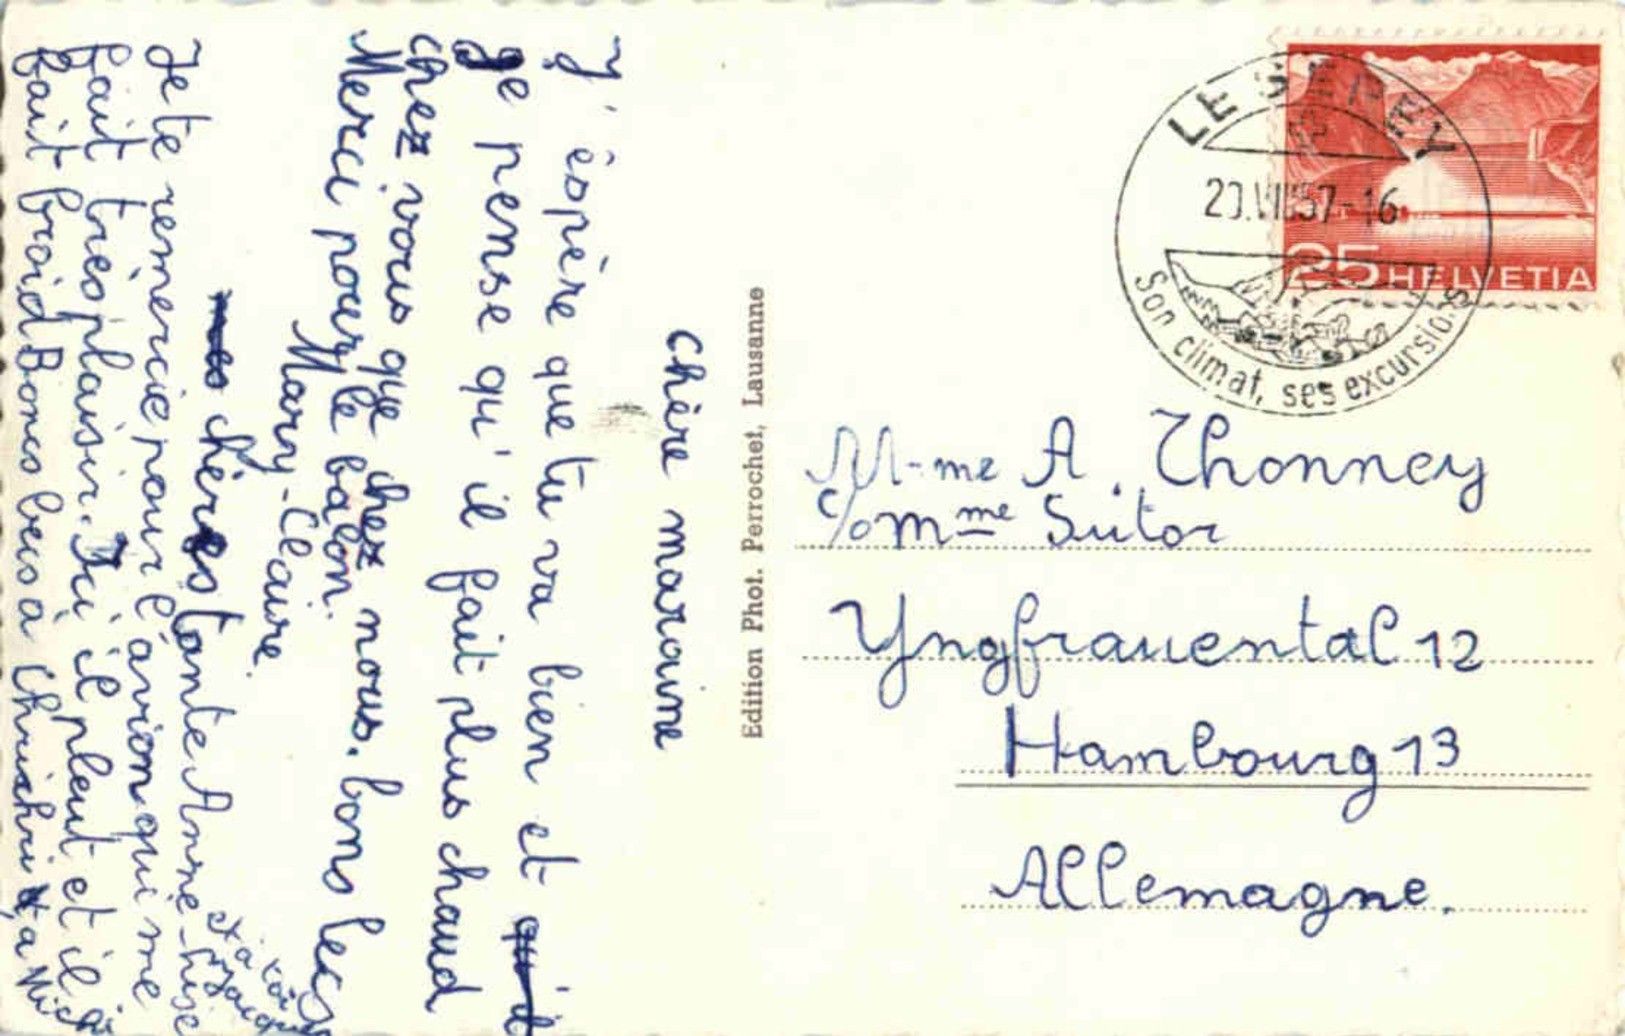 Chère maraine
J'éspère que tu va bien et
Je pense qu'il fait plus chaud
chez vous que chez nous. bons becs
Merci pour le balon.
Mary-Claire.
chères tante Anne-Lise
Je te remercie pour l'avion qui me
fait très plaisir. Ici il pleut et il
fait froid Boncs becs à Christi
et à toi
Jacques
Edition Phot. Perrochet, Lausanne
LE SÉPEY
20.VII.57-16
Son climat, ses excursions
25 HELVETIA
M-me A. Thonney
c/o Mme Sutor
Yngfrauental 12
Hambourg 13
Allemagne.